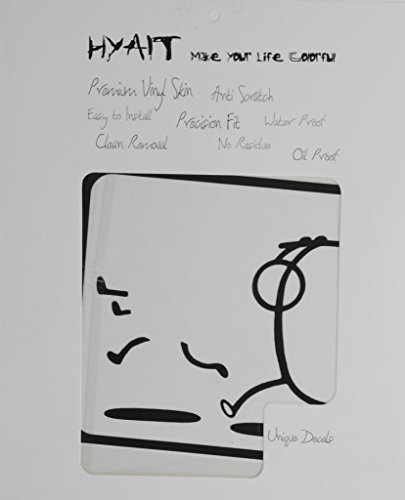 HYAIT Make Your Life Colorful
Premium Vinyl Skin Anti Scratch
Easy to Install Precision Fit Water Proof
Clean Removal No Residue Oil Proof
Unique Decals